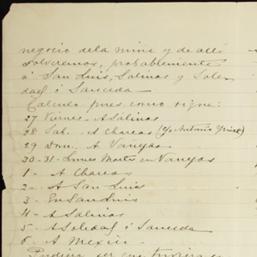 negocio de la mina y de allí
volveremos, probablemente
á San Luis, Salinas y Sole-
dad ó Sauceda
Calculo pues como sigue:
27 Viernes - A Salinas
28 Sab. - A Charcas (Yo Antonio
29 Dom. A Vanegas
30-31 - Lunes Martes en Vanegas
1 - A Charcas
2 - A San Luis
3 - En San Luis
4 - A Salinas
5 - A Soledad ó Sauceda
6 - A Mexico